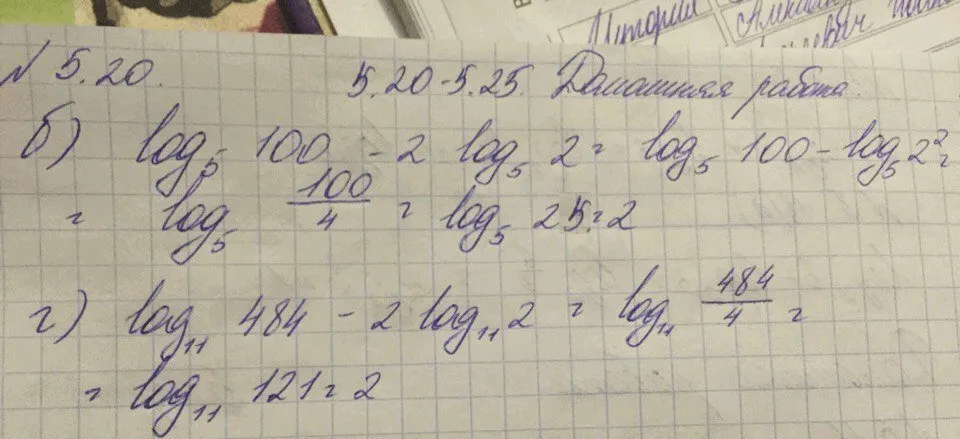 История
№ 5.20. 5.20-5.25. Домашняя работа.
б) log₅ 100 - 2 log₅ 2 = log₅ 100 - log₅ 2² =
= log₅ 100/4 = log₅ 25 = 2
г) log₁₁ 484 - 2 log₁₁ 2 = log₁₁ 484/4 =
= log₁₁ 121 = 2